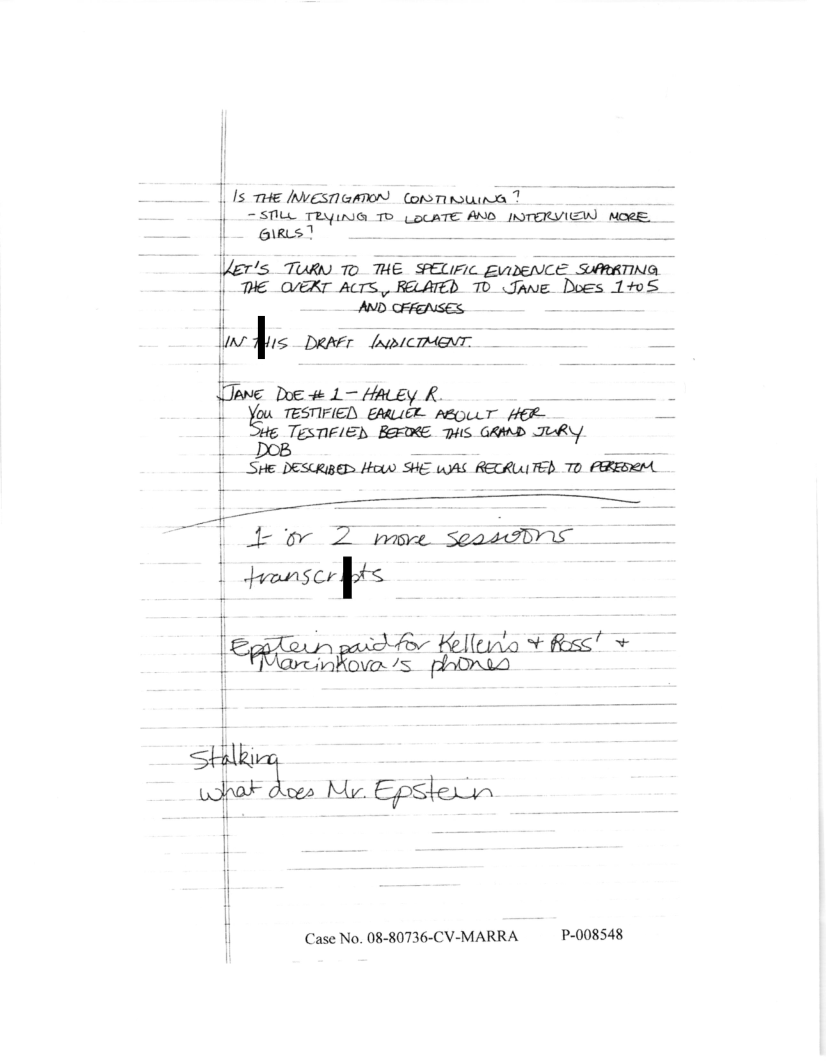 IS THE INVESTIGATION CONTINUING?
- STILL TRYING TO LOCATE AND INTERVIEW MORE
GIRLS?
LET'S TURN TO THE SPECIFIC EVIDENCE SUPPORTING
THE OVERT ACTS, RELATED TO JANE DOES 1 to 5
AND OFFENSES
IN THIS DRAFT INDICTMENT.
JANE DOE # 1 - HALEY R.
YOU TESTIFIED EARLIER ABOUT HER
SHE TESTIFIED BEFORE THIS GRAND JURY
DOB
SHE DESCRIBED HOW SHE WAS RECRUITED TO PERFORM
1 or 2 more sessions
transcripts
Epstein paid for Kellen's + Ross' +
Marcinkova's phones
Stalking
what does Mr. Epstein
Case No. 08-80736-CV-MARRA P-008548